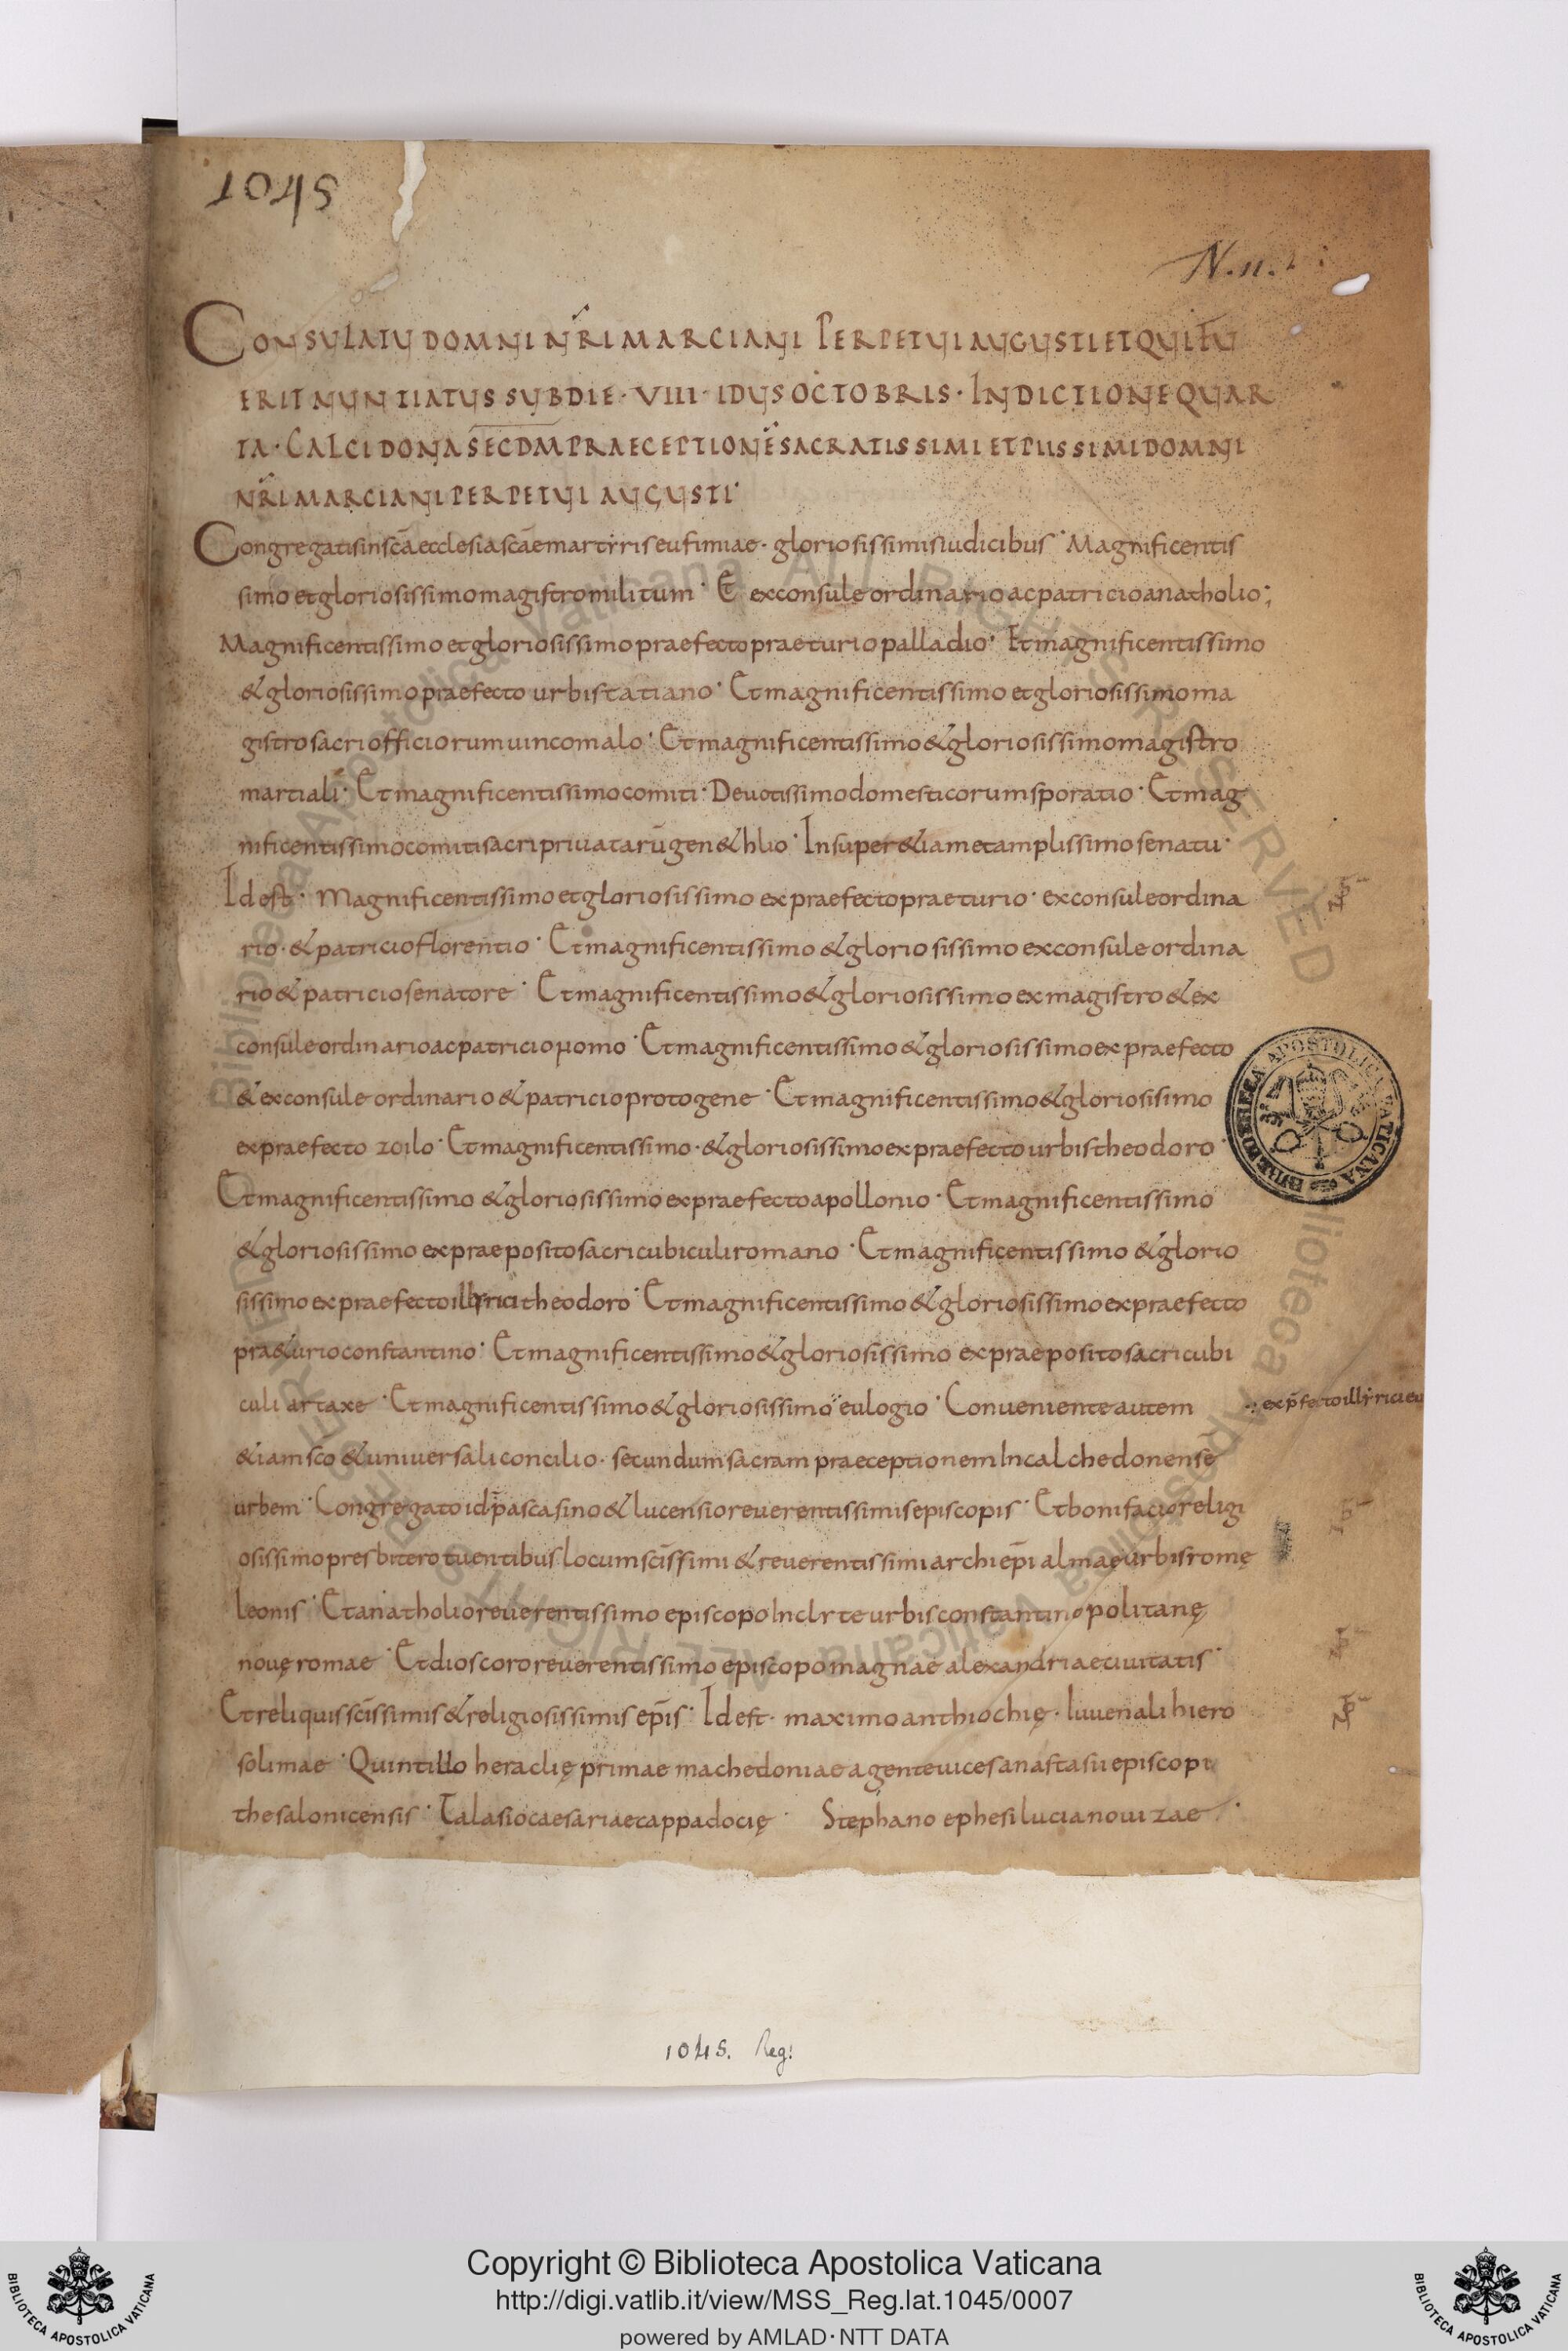 1045
N. n.
CONSULATU DOMNI NRI MARCIANI PERPETUI AUGUSTI ET QUI FU
ERIT NUNTIATUS SUB DIE · VIII · IDUS OCTOBRIS · INDICTIONE QUAR
TA · CALCIDONA SECDM PRAECEPTIONE SACRATISSIMI ET PIISSIMI DOMNI
NRI MARCIANI PERPETUI AUGUSTI·
Congregatis in scā ecclesia scāe martyris eufimiae · gloriosissimis iudicibus · Magnificentis
simo et gloriosissimo magistro militum · Et exconsule ordinario ac patricio anatholio ;
Magnificentissimo et gloriosissimo praefecto praeturio palladio · Et magnificentissimo
& gloriosissimo praefecto urbis tatiano · Et magnificentissimo et gloriosissimo ma
gistro sacri officiorum uincomalo · Et magnificentissimo & gloriosissimo magistro
martiali · Et magnificentissimo comiti · Deuotissimo domesticorum sporatio · Et mag
nificentissimo comiti sacri priuatarū gen&hlio · Insuper &iam et amplissimo senatu ·
Id est · Magnificentissimo et gloriosissimo expraefecto praeturio · exconsule ordina
rio · & patricio florentio · Et magnificentissimo & gloriosissimo exconsule ordina
rio & patricio senatore · Et magnificentissimo & gloriosissimo ex magistro & ex
consule ordinario ac patricio nomo · Et magnificentissimo & gloriosissimo expraefecto
& exconsule ordinario & patricio protogene · Et magnificentissimo & gloriosisimo
expraefecto zoilo · Et magnificentissimo · & gloriosissimo expraefecto urbis theodoro ·
Et magnificentissimo & gloriosissimo expraefecto apollonio · Et magnificentissimo
& gloriosissimo expraeposito sacri cubiculi romano · Et magnificentissimo & glorio
sissimo expraefecto illyrici theodoro · Et magnificentissimo & gloriosissimo expraefecto
pra&urio constantino · Et magnificentissimo & gloriosissimo expraeposito sacri cubi
culi artaxe · Et magnificentissimo & gloriosissimo eulogio · Conueniente autem
exp̄fecto illyrici eu
&iam sco & uniuersali concilio · secundum sacram praeceptionem In calchedonense
urbem · Congregato id̄ pascasino & lucensio reuerentissimis episcopis · Et bonifacio religi
osissimo presbitero tuentibus locum scīssimi & reuerentissimi archiep̄i almae urbis romę
leonis · Et anatholio reuerentissimo episcopo Inclyte urbis constantinopolitanę
nouę romae · Et dioscoro reuerentissimo episcopo magnae alexandriae ciuitatis ·
Et reliquis scīssimis & religiosissimis ep̄is · Id est · maximo anthiochię · Iuuenali hiero
solimae · Quintillo heraclię primae machedoniae agente uices anastasii episcopi
thesalonicensis · Talasio caesariae cappadocię · Stephano ephesi luciano uizae ·
1045. Reg:
BIBLIOTHECA APOSTOLICA VATICANA
Biblioteca Apostolica Vaticana ALL RIGHTS RESERVED
Copyright © Biblioteca Apostolica Vaticana
http://digi.vatlib.it/view/MSS_Reg.lat.1045/0007
powered by AMLAD·NTT DATA
BIBLIOTECA APOSTOLICA VATICANA
BIBLIOTECA APOSTOLICA VATICANA